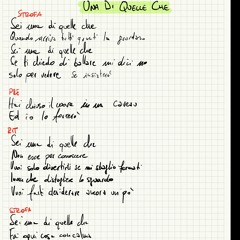 UNA DI QUELLE CHE
STROFA
Sei una di quelle che
Quando arriva tutti
Sei una di quelle che
Se ti chiedo di ballare mi dici no
solo per vedere se insisterò
PRE
Hai chiuso il cuore in un
Ed io lo
RIT
Sei una di quelle che
Non esce per conoscere
Vuoi solo divertirti se mi sbaglio fermati
ma che distogliere lo sguardo
Vuoi farti desiderare ancora un po'
STROFA
Sei una di quelle che
Fai ogni cosa